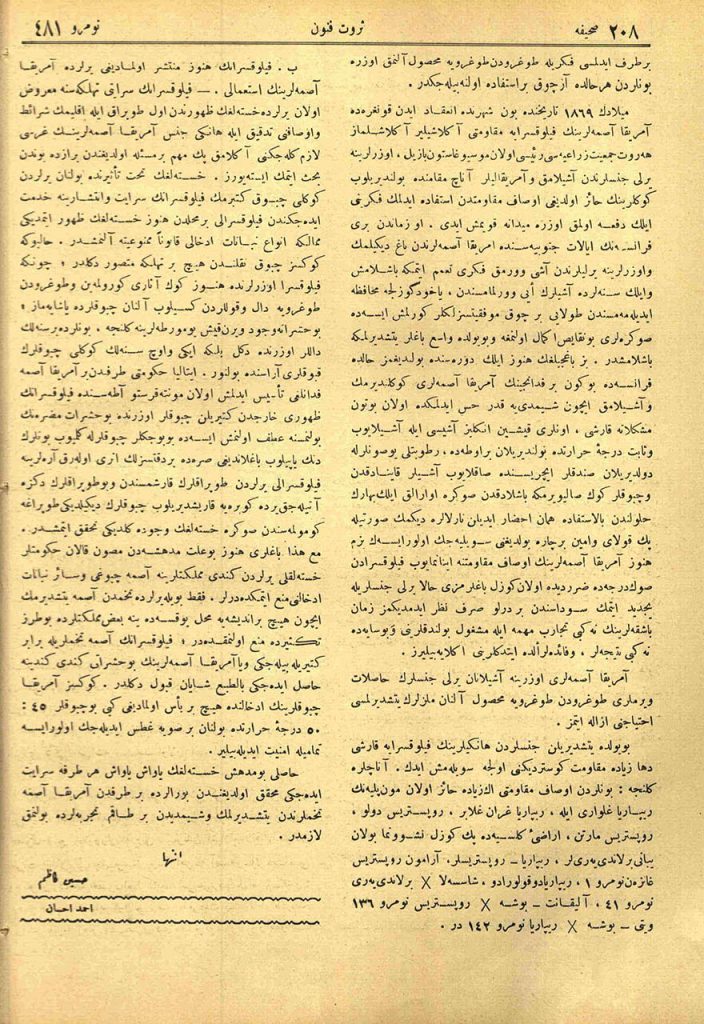 صحیفه ٢٠٨
ثروت فنون
نومرو ٤٨١
برطرف ایدلمسی فکریله طوغرودن طوغرویه محصول آلنمق اوزره
بونلردن هر حالده آز چوق بر استفاده اولنه بیله جکدر .
میلادك ١٨٦٩ تاریخنده بون شهرنده انعقاد ایدن قونغره ده
آمریقا آصمه لرینك فیلوقسرایه مقاومتی آکلاشیلیر آکلاشلماز
هه روت جمعیت زراعیه سی رئیسی اولان موسیو غاستون بازیل ، اوزرلرینه
یرلی جنسلرندن آشیلامق و آمریقالیلر آناج مقامنده بولندیریلوب
کوکلرینك حائز اولدیغی اوصاف مقاومتدن استفاده ایدلمك فکرینی
ایلك دفعه اولمق اوزره میدانه قویمش ایدی . او زماندن بری
فرانسه نك ایالات جنوبیه سنده امریقا آصمه لرندن باغ دیکیلمك
و اوزرلرینه یرلیلرندن آشی وورمق فکری تعمم ایتمکه باشلامش
و ایلك سنه لرده آشیلرك ایی وورلمامسندن ، یاخود کوزلجه محافظه
ایدیله مه مسندن طولایی بر چوق موفقیتسزلکلر کورلمش ایسه ده
صوکره لری بو نقایص اکمال اولنمغه و بو یولده واسع باغلر یتشدیرلمکه
باشلامشدر . بز باغجیلغك هنوز ایلك دوره سنده بولندیغمز حالده
فرانسه ده بوکون بر فدانجینك آمریقا آصمه لری کوکلندیرمك
و آشیلامق ایچون شیمدی یه قدر حس ایدلمکده اولان بوتون
مشکلاته قارشی ، اونلری قیشین انکلیز آشیسی ایله آشیلایوب
و ثابت درجهٔ حرارتده بولندیریلان بر اوطه ده ، رطوبتلی یوصونلرله
دولدیریلان صندقلر ایچریسنده صاقلایوب آشیلر قاینادقدن
و چبوقلر کوك صالیویرمکه باشلادقدن صوکره اورالاری ایلك بهارك
حلولندن بالاستفاده همان احضار ایدیلن تارلالره دیکمك صورتیله
پك قولای و امین بر چاره بولدیغنی سویلیه جك اولورایسه ك بزم
هنوز آمریقا آصمه لرینك اوصاف مقاومتنه اینانمایوب فیلوقسرادن
صوك درجه ده ضرردیده اولان کوزل باغلرمزی حالا یرلی جنسلریله
تجدید ایتمك سوداسندن بر درلو صرف نظر ایده مدیکمز زمان
باشقه لرینك نه کبی تجارب مهمه ایله مشغول بولندقلرنی و بو سایه ده
نه کبی نتیجه لر ، وفائده لر الده ایتدکلرینی اکلایه بیلیرز .
آمریقا آصمه لری اوزرینه آشیلانان یرلی جنسلرك حاصلات
ویرملری طوغرودن طوغرویه محصول آلنان ملزلرك یتشدیرلمسی
احتیاجنی ازاله ایتمز .
بو یولده یتشدیریلن جنسلردن هانکیلرینك فیلوقسرایه قارشی
دها زیاده مقاومت کوستردیکنی اولجه سویله مش ایدك . آناجلره
کلنجه : بونلردن اوصاف مقاومتی اك زیاده حائز اولان مون پلیه نك
ریپاریا غلواری ایله ، ریپاریا غران غلابر ، روپستریس دولو ،
روپستریس مارتن ، اراضیٔ کلسیه ده پك کوزل نشوونما بولان
یبانی برلاندی یه ری لر ، ریپاریا — روپستریسلر . آرامون روپستریس
غانزه ن نومرو ١ ، ریپاریا دوقولورادو ، شاسسه لا × برلاندی یه ری
نومرو ٤١ ، آلیقانت — بوشه × روپستریس نومرو ١٣٦
ویتی — بوشه × ریپاریا نومرو ١٤٢ در .
ب . فیلوقسرانك هنوز منتشر اولمادیغی یرلرده آمریقا
آصمه لرینك استعمالی . — فیلوقسرانك سرایتی تهلکه سنه معروض
اولان یرلرده خسته لغك ظهورندن اول طوپراق ایله اقلیمك شرائط
و اوصافنی تدقیق ایله هانکی جنس آمریقا آصمه لرینك غرسی
لازم کله جکنی آکلامق پك مهم بر مسئله اولدیغندن برازده بوندن
بحث ایتمك ایسته یورز . خسته لغك تحت تأثیرنده بولنان یرلردن
کوکلی چبوق کتیرمك فیلوقسرانك سرایت و انتشارینه خدمت
ایده جکندن فیلوقسرالی بر محلدن هنوز خسته لغك ظهور ایتمدیکی
ممالکه انواع نباتات ادخالی قانوناً ممنوعیته آلنمشدر . حالبوکه
کوکسز چبوق نقلندن هیچ بر تهلکه متصور دکلدر ؛ چونکه
فیلوقسرا اوزرلرنده هنوز کوك آثاری کورولمین و طوغرودن
طوغرویه دال و قوللردن کسیلوب آلنان چبوقلرده یاشایه ماز ؛
بو حشراته وجود ویرن قیش یومورطه لرینه کلنجه . بونلرده بر سنه لك
داللر اوزرنده دکل بلکه ایکی و اوچ سنه لك کوکلی چبوقلرك
قبوقلری آراسنده بولنور . ایتالیا حکومتی طرفندن بر آمریقا آصمه
فدانلغی تأسیس ایدلمش اولان مونته قرستو آطه سنده فیلوقسرانك
ظهوری خارجدن کتیریلن چبوقلر اوزرنده بو حشرات مضره نك
بولنمسنه عطف اولنمش ایسه ده بو بوجکلر چبوقلرله کلمیوب بونلرك
دنك یاپیلوب باغلاندیغی صره ده بر دقتسزلك اثری اوله رق آره لرینه
فیلوقسرالی یردن طوپراقلر قارشمسندن و بو طوپراقلرك دکزه
آتیله جق یرده کوبره یه قاریشدیریلوب چبوقلرك دیکیلدیکی طوپراغه
کومولمه سندن صوکره خسته لغك وجوده کلدیکی تحقق ایتمشدر .
مع هذا باغلری هنوز بو علت مدهشه دن مصون قالان حکومتلر
خسته لقلی یرلردن کندی مملکتلرینه آصمه چبوغی و سائر نباتات
ادخالنی منع ایتمکده درلر . فقط بویله یرلرده تخمدن آصمه یتشدیرمك
ایچون هیچ بر اندیشه یه محل یوقسه ده ینه بعض مملکتلرده بو طرز
تکثیرده منع اولنمقده در ؛ فیلوقسرانك آصمه تخملریله برابر
کتیریله بیله جکی و یا آمریقا آصمه لرینك بو حشراتی کندی کندینه
حاصل ایده جکی بالطبع شایان قبول دکلدر . کوکسز آمریقا
چبوقلرینك ادخالنده هیچ بر بأس اولمادیغی کبی بو چبوقلر ٤٥ :
٥٠ درجهٔ حرارتده بولنان بر صویه غطس ایدیله جك اولورایسه
تمامیله امنیت ایدیله بیلیر .
حاصلی بو مدهش خسته لغك یاواش یاواش هر طرفه سرایت
ایده جکی محقق اولدیغندن بورالرده بر طرفدن آمریقا آصمه
تخملرندن یتشدیرلمك و شیمدیدن بر طاقم تجربه لرده بولنمق
لازمدر .
انتها
حسین کاظم
احمد احسان